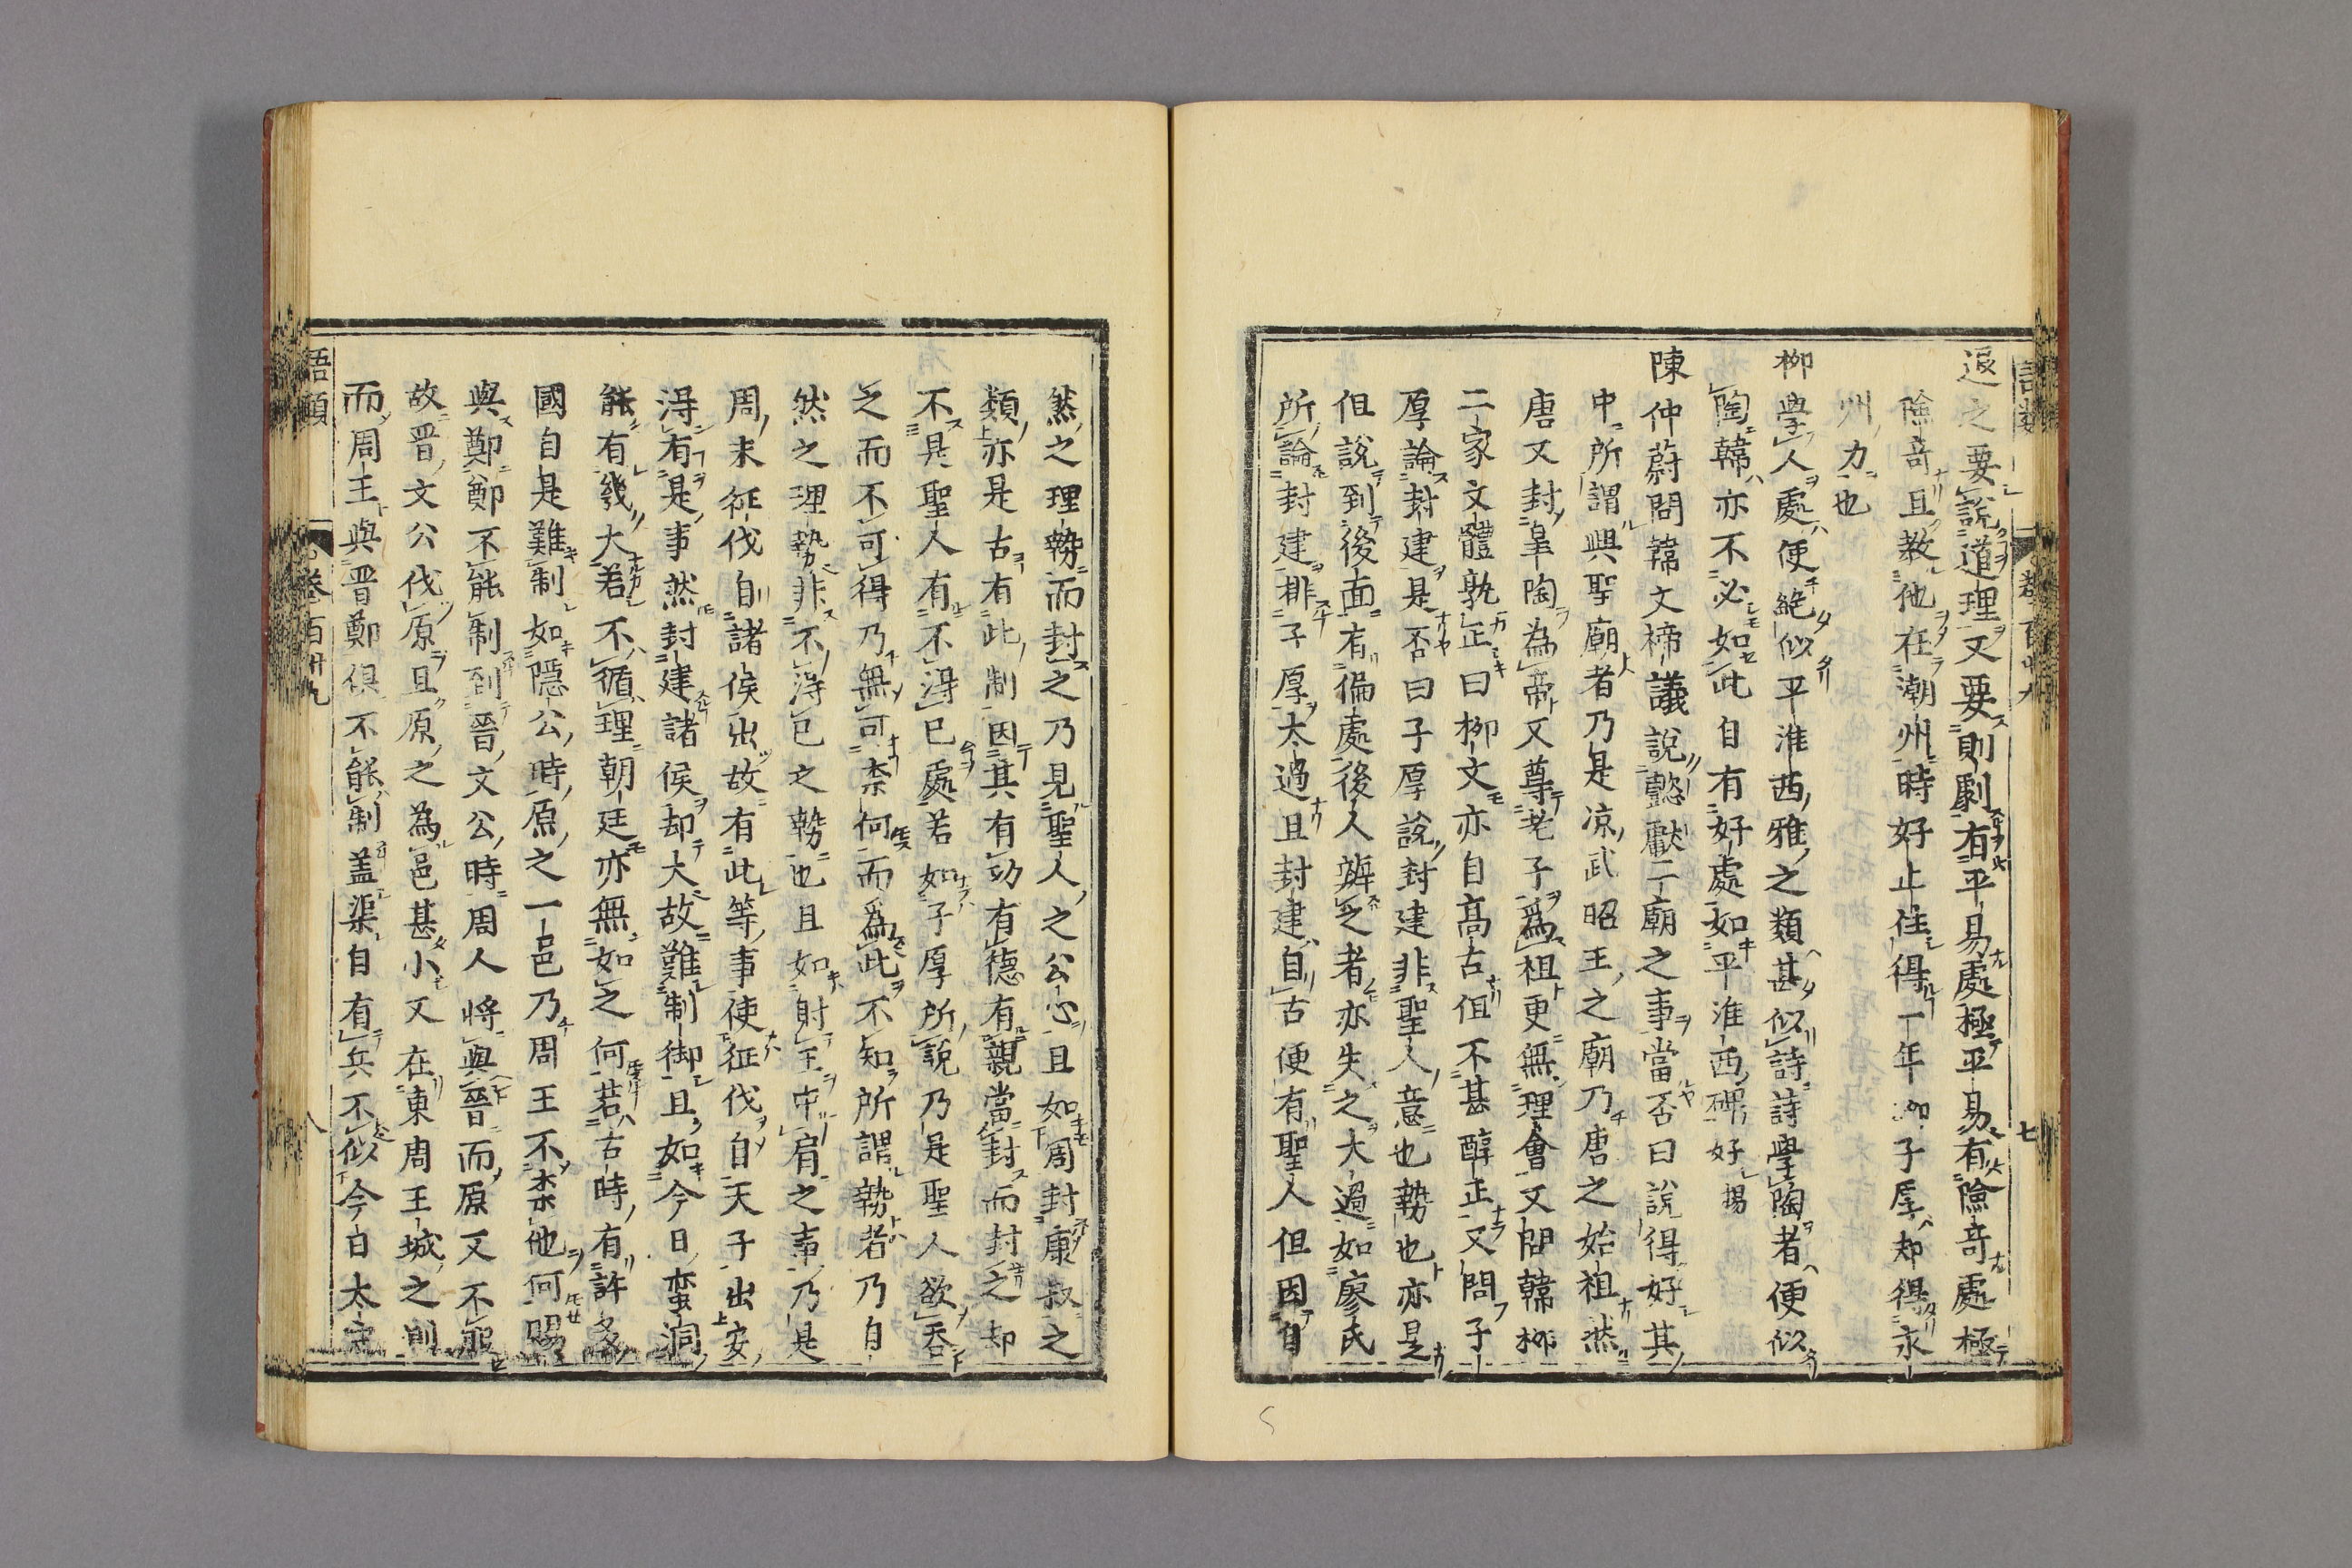 退之要說道理又要則劇有平易處極平易有險奇處極
險奇且教他在潮州時好止住得一年柳子厚却得永
州力也
柳學人處便絶似平淮西雅之類甚似詩詩學陶者便似
陶韓亦不必如此自有好處如平淮西碑好 揚
陳仲蔚問韓文禘議說懿獻二廟之事當否曰說得好其
中所謂興聖廟者乃是凉武昭王之廟乃唐之始祖然
唐又封皐陶為帝又尊老子爲祖更無理會又問韓柳
二家文體孰正曰柳文亦自高古但不甚醇正又問子
厚論封建是否曰子厚說封建非聖人意也勢也亦是
但說到後面有偏處後人辨之者亦失之大過如廖氏
所論封建排子厚太過且封建自古便有聖人但因自
然之理勢而封之乃見聖人之公心且如周封康叔之
類亦是古有此制因其有功有德有親當封而封之却
不是聖人有不得已處若如子厚所說乃是聖人欲吞
之而不可得乃無可柰何而爲此不知所謂勢者乃自
然之理勢非不得已之勢也且如射王中肩之事乃是
周末征伐自諸侯出故有此等事使征伐自天子出安
得有是事然封建諸侯却大故難制御且如今日蠻洞
能有幾大若不循理朝廷亦無如之何若古時有許多
國自是難制如隱公時原之一邑乃周王不柰他何賜
與鄭鄭不能制到晉文公時周人將與晉而原又不服
故晋文公伐原且原之為邑甚小又在東周王城之側
而周王與晋鄭俱不能制盖渠自有兵不似今日太守
語類 卷百卅九 七
語類 卷百卅九 八